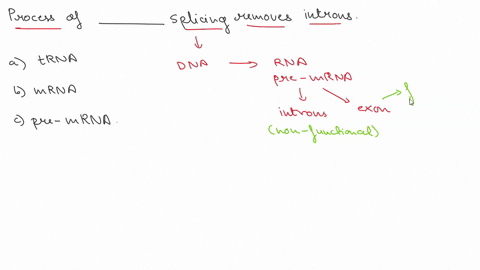 Process of ________ splicing removes introns.
a) tRNA
b) mRNA
c) pre-mRNA.
DNA → RNA
pre-mRNA
introns exon → f
(non-functional)